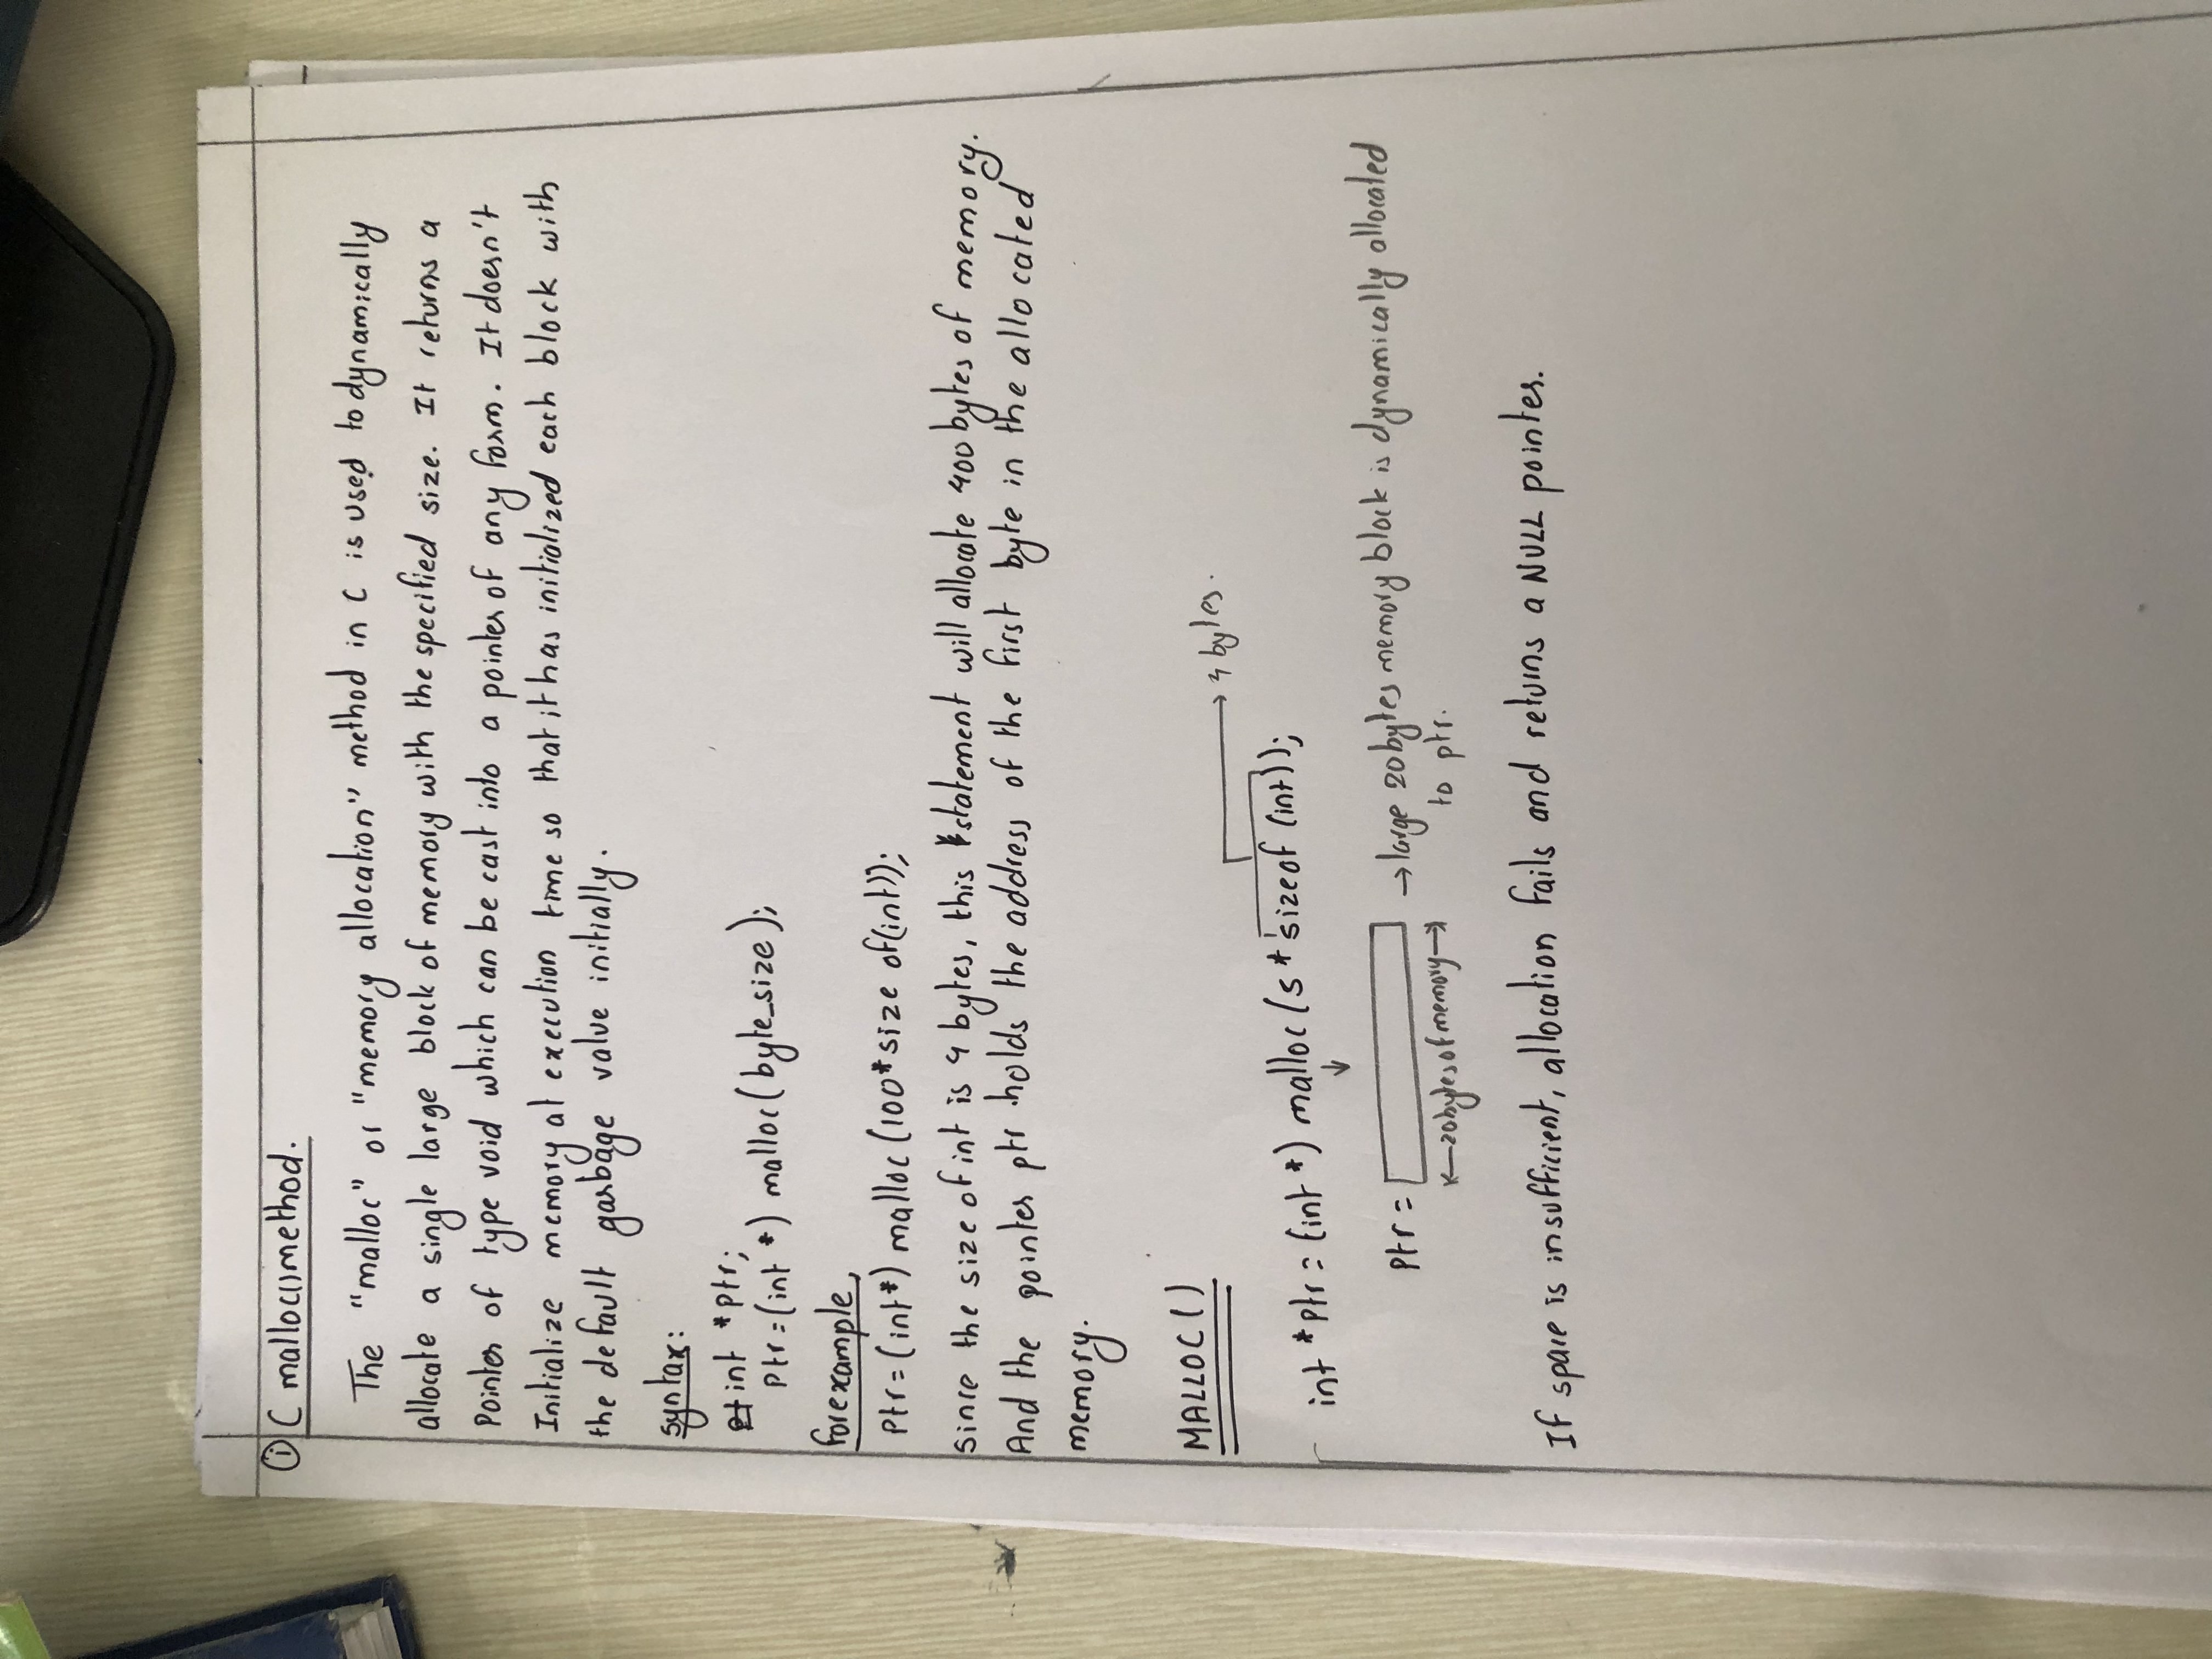 i C malloc() method.
The "malloc" or "memory allocation" method in C is used to dynamically
allocate a single large block of memory with the specified size. It returns a
Pointer of type void which can be cast into a pointer of any form. It doesn't
Initialize memory at execution time so that it has initialized each block with
the default garbage value initially.
syntax:
int *ptr;
ptr = (int *) malloc (byte_size);
for example,
ptr = (int*) malloc (100* size of(int));
since the size of int is 4 bytes, this statement will allocate 400 bytes of memory.
And the pointer ptr holds the address of the first byte in the allocated
memory.
MALLOC()
→ 4 bytes.
int *ptr = (int *) malloc (5 * sizeof (int));
ptr = → large 20 bytes memory block is dynamically allocated
20 bytes of memory to ptr.
If space is insufficient, allocation fails and returns a NULL pointer.